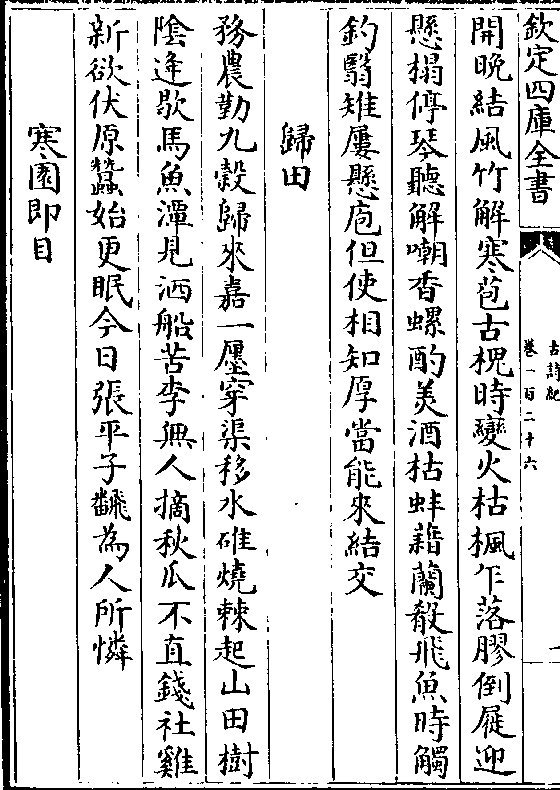 欽定四庫全書
古詩紀
卷一百二十六
開晚結風竹解寒苞古槐時變火枯楓乍落膠倒屣迎
懸榻停琴聽解嘲香螺酌美酒枯蚌藉蘭殽飛魚時觸
釣翳雉屢懸庖但使相知厚當能來結交
歸田
務農勤九穀歸來嘉一㕓穿渠移水碓燒棘起山田樹
陰逢歇馬魚潭見洒船苦李無人摘秋瓜不直錢社雞
新欲伏原蠶始更眠今日張平子翻為人所憐
寒園即目